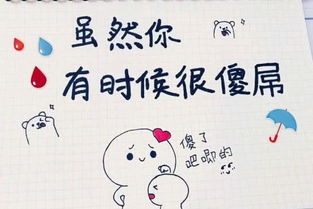 虽然你
有时候很傻屌
傻了
吧唧的